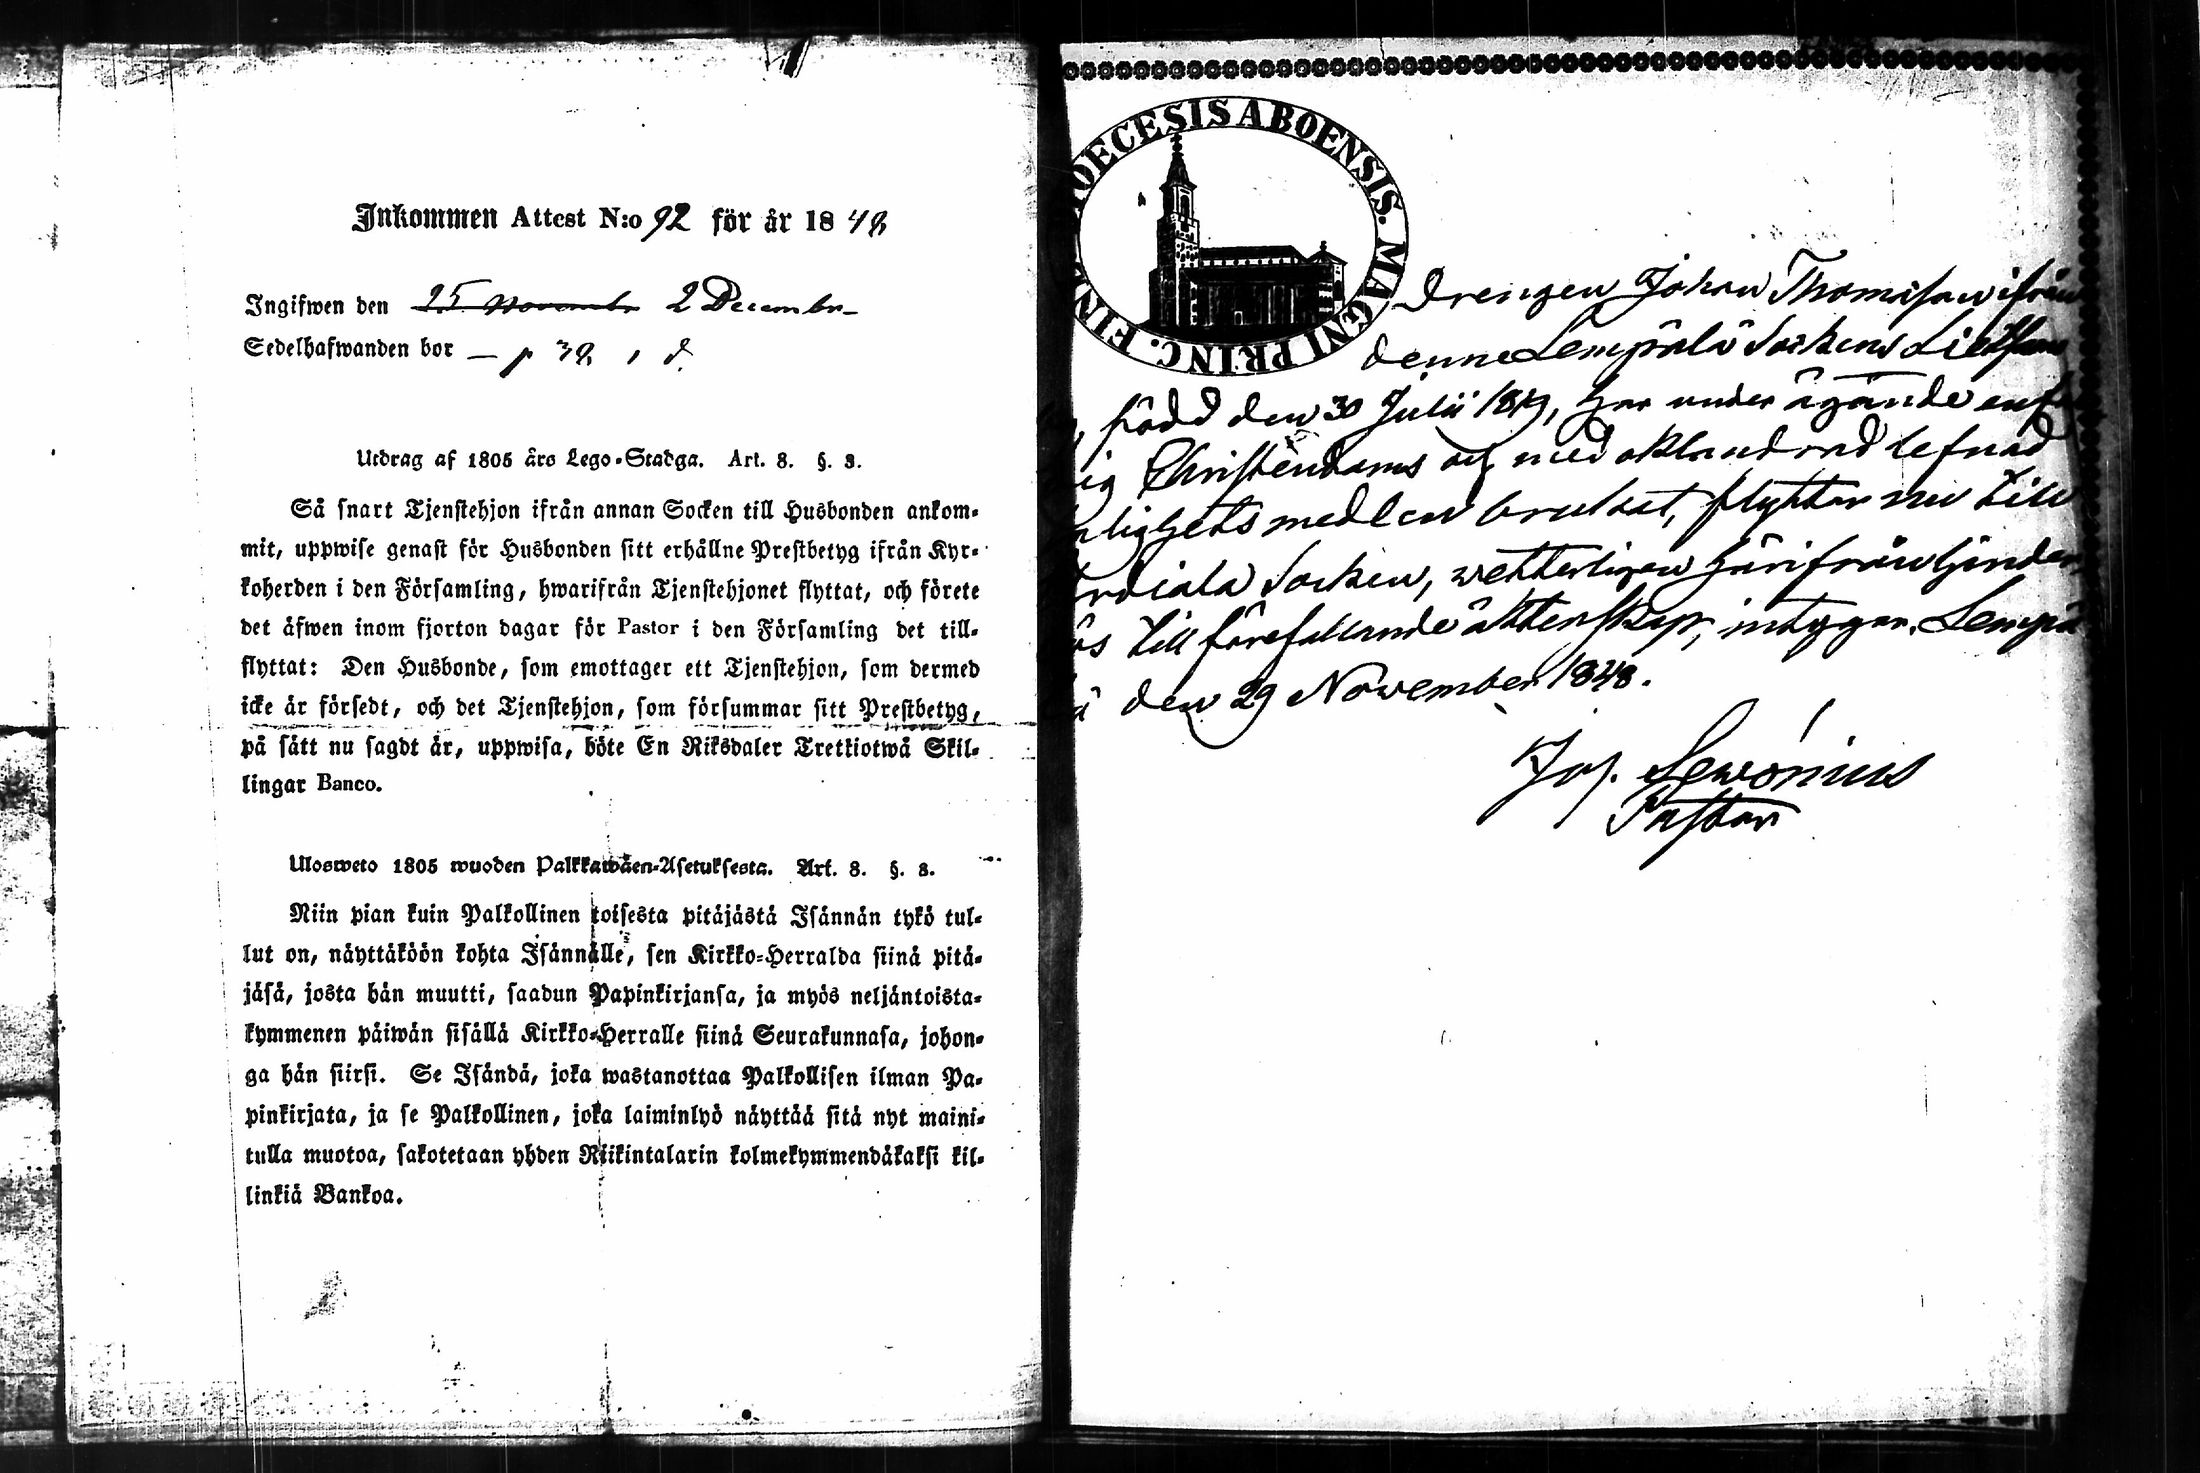 Inkommen Attest N:o 92 för år 1848
Ingifwen den 25 Novembr 2 Decembr
Sedelhafwanden bor — p 38, d.
Utdrag af 1805 års Lego-Stadga. Art. 8. §. 3.
Så snart Tjenstehjon ifrån annan Socken till Husbonden ankom-
mit, uppwise genast för Husbonden sitt erhållne Prestbetyg ifrån Kyr-
koherden i den Församling, hwarifrån Tjenstehjonet flyttat, och förete
det äfwen inom fjorton dagar för Pastor i den Församling det till-
flyttat: Den Husbonde, som emottager ett Tjenstehjon, som dermed
icke är försedt, och det Tjenstehjon, som försummar sitt Prestbetyg,
på sätt nu sagdt är, uppwisa, böte En Riksdaler Trettiotwå Skil-
lingar Banco.
Ulosweto 1805 wuoden Palkkawäen-Asetuksesta. Art. 8. §. 3.
Niin pian kuin Palkollinen toisesta pitäjästä Isännän tykö tul-
lut on, näyttäköön kohta Isännälle, sen Kirkko-Herralda siinä pitä-
jäsä, josta hän muutti, saadun Papinkirjansa, ja myös neljäntoista-
kymmenen päiwän sisällä Kirkko-Herralle siinä Seurakunnasa, johon-
ga hän siirsi. Se Isändä, joka wastanottaa Palkollisen ilman Pa-
pinkirjata, ja se Palkollinen, joka laiminlyö näyttää sitä nyt maini-
tulla muotoa, sakotetaan yhden Riikintalarin kolmekymmendäkaksi kil-
linkiä Bankoa.
OECESIS ABOENSIS. MAGNI PRINC. FINL
Drengen Johan Thomasson ifrån
denne Lempälä Sockens
född den 30 Julii 1819, har under ägande
ig Christendoms och med oklandrad lefnad
nlighets medlen brukat, flyttar nu till
rdiala Socken, wetterligen härifrån hinder-
ös till förefallande äktenskap, intygar. Lempä
ä den 29 November 1848.
Jos. Lewonius
Pastor